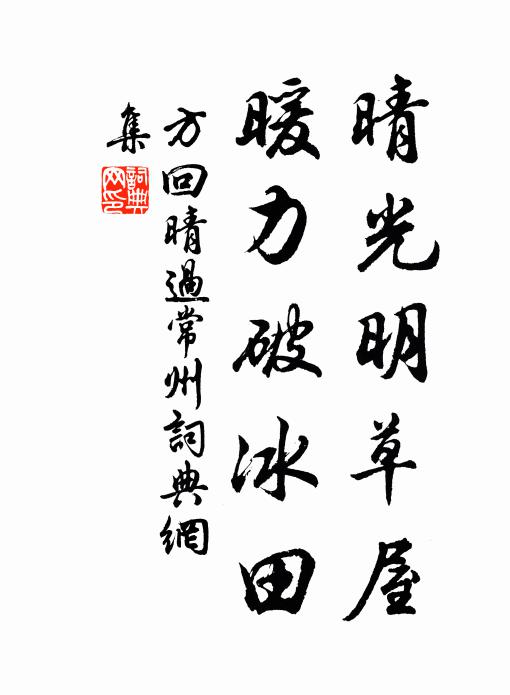 晴光明草屋
暖力破冰田
方回晴過常州詞典網
集
詞典網印